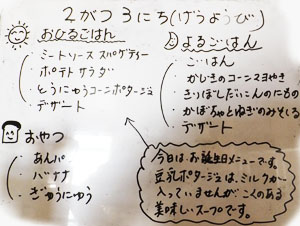 2がつ3にち(げつようび)
おひるごはん
・ミートソース スパゲティー
・ポテト サラダ
・とうにゅうコーンポタージュ
・デザート
よるごはん
・ごはん
・かじきのコーンマヨやき
・きりぼしだいこんのにもの
・かぼちゃとねぎのみそしる
・デザート
おやつ
・あんパン
・バナナ
・ぎゅうにゅう
今日はお誕生日メニューです。
豆乳ポタージュは、ミルクが
入っていませんがこくのある
美味しいスープです。